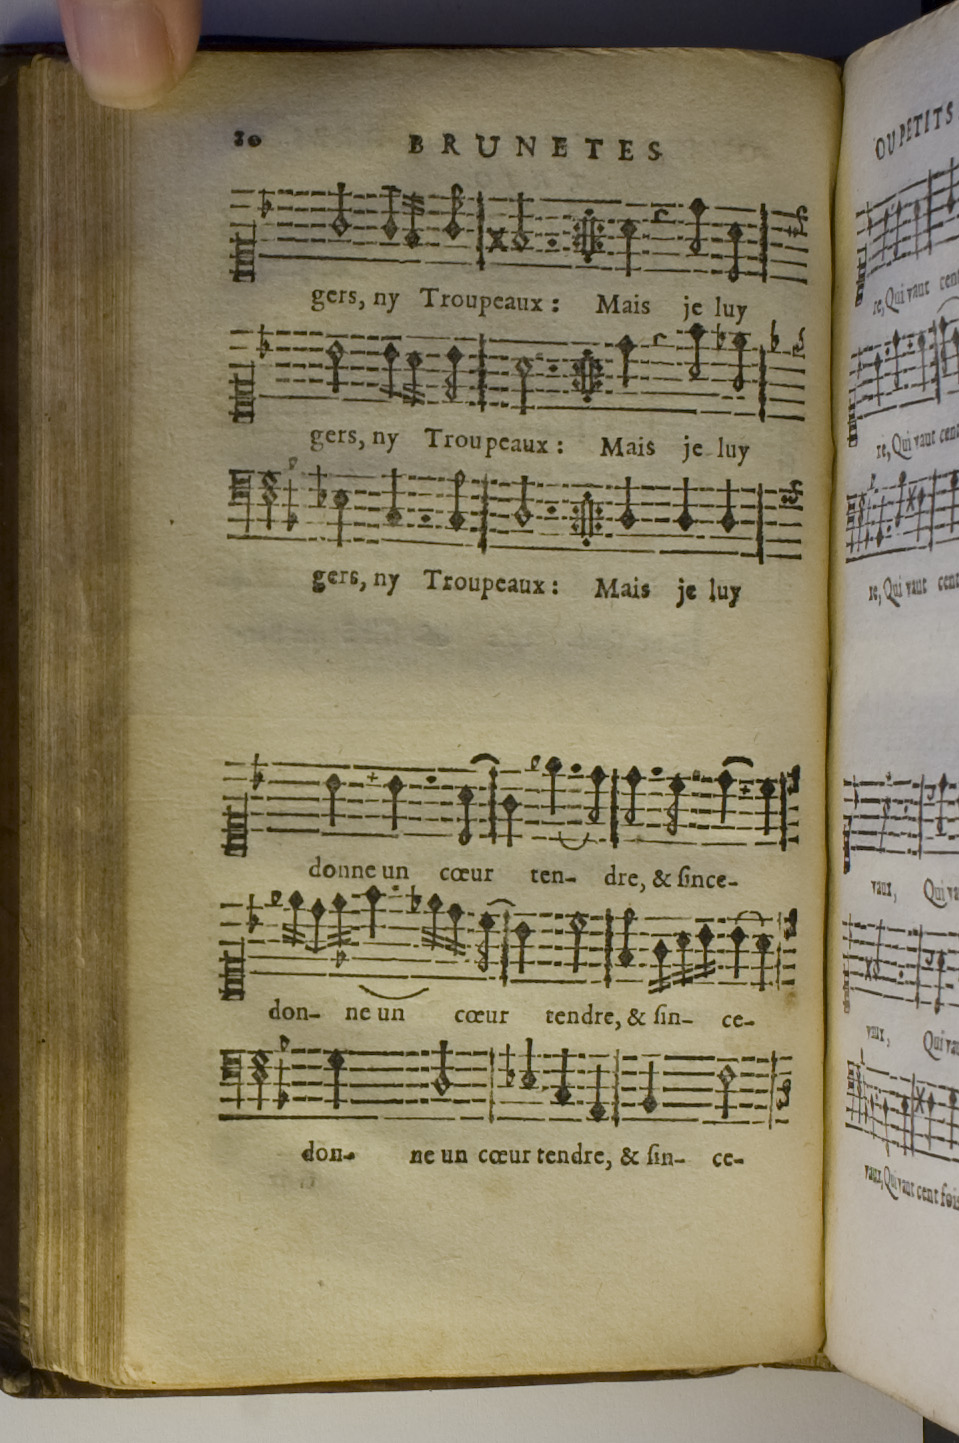 20 BRUNETES
gers, ny Troupeaux : Mais je luy
gers, ny Troupeaux : Mais je luy
gers, ny Troupeaux : Mais je luy
donne un cœur ten- dre, & ſince-
don- ne un cœur tendre, & ſin- ce-
don- ne un cœur tendre, & ſin- ce-
OU PETITS
re, Qui vaut cent
re, Qui vaut cent
re, Qui vaut cent
vaux, Qui va
vaux, Qui vau
vaux, Qui vaut cent fois